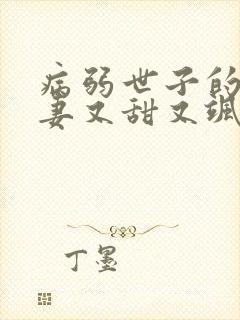 病弱世子的
妻又甜又飒
丁墨